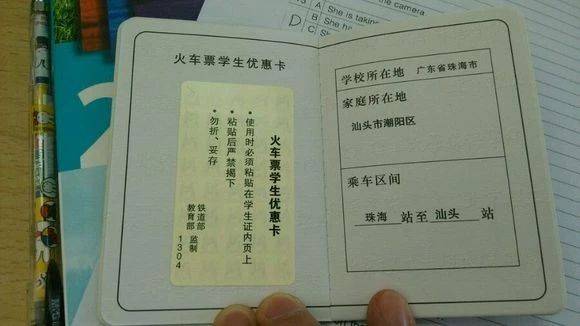 A She is taking
the camera
D
B She ha
C Sh
火车票学生优惠卡
火车票学生优惠卡
• 使用时必须粘贴在学生证内页上
• 粘贴后严禁揭下
• 勿折、妥存
铁道部
教育部 监制
1304
学校所在地 广东省珠海市
家庭所在地
汕头市潮阳区
乘车区间
珠海 站至 汕头 站
2